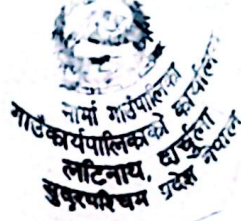 मार्मा गाउँपालिका
गाउँ कार्यपालिकाको कार्यालय
लटिनाथ, दार्चुला
सुदूरपश्चिम प्रदेश नेपाल